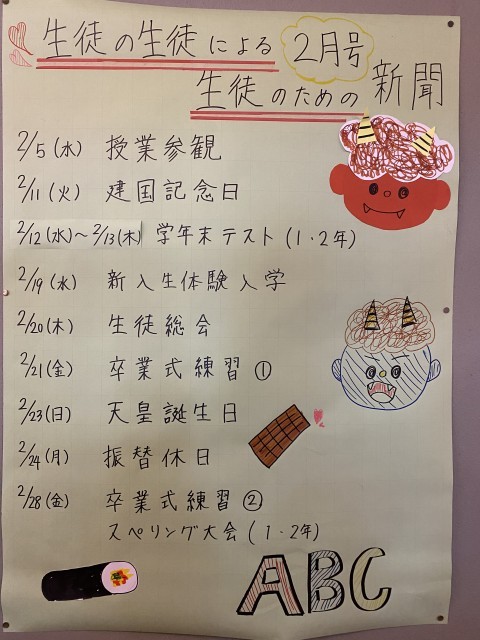 生徒の生徒による
2月号
生徒のための新聞
2/5(水) 授業参観
2/11(火) 建国記念日
2/12(水)~2/13(木) 学年末テスト(1・2年)
2/19(水) 新入生体験入学
2/20(木) 生徒総会
2/21(金) 卒業式練習①
2/23(日) 天皇誕生日
2/24(月) 振替休日
2/28(金) 卒業式練習②
スペリング大会(1・2年)
ABC